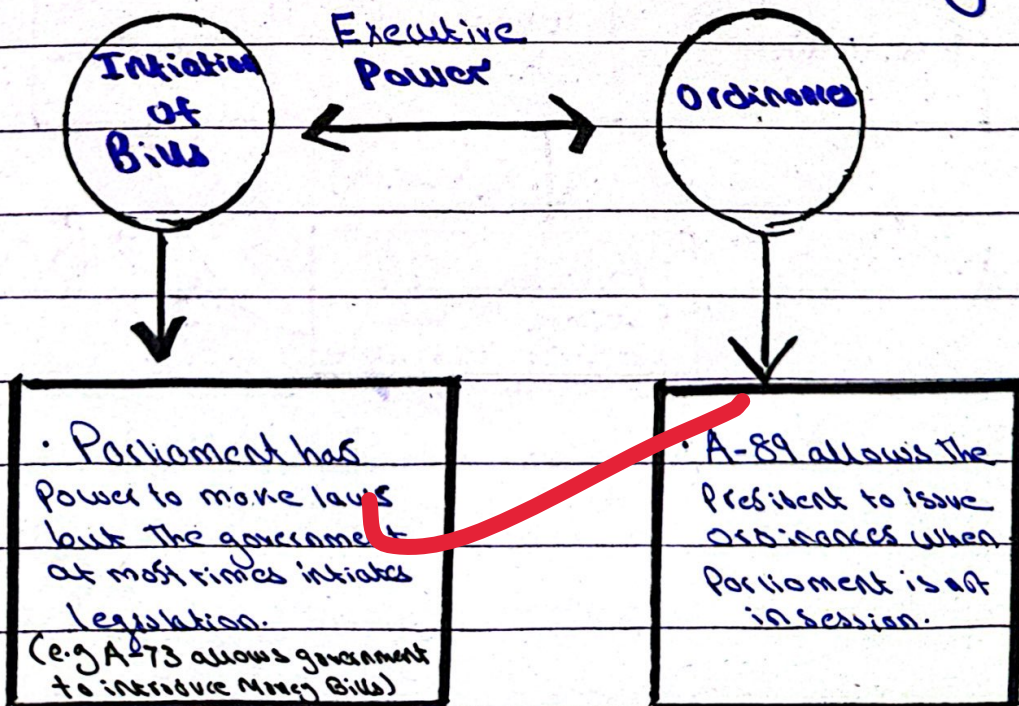 Executive
Power
Intiation
of
Bills
Ordinances
· Parliament has
Power to make laws
but the government
at most times intiates
legislation.
(e.g A-73 allows government
to introduce Money Bills)
· A-89 allows the
President to issue
Ordinances when
Parliament is not
in session.